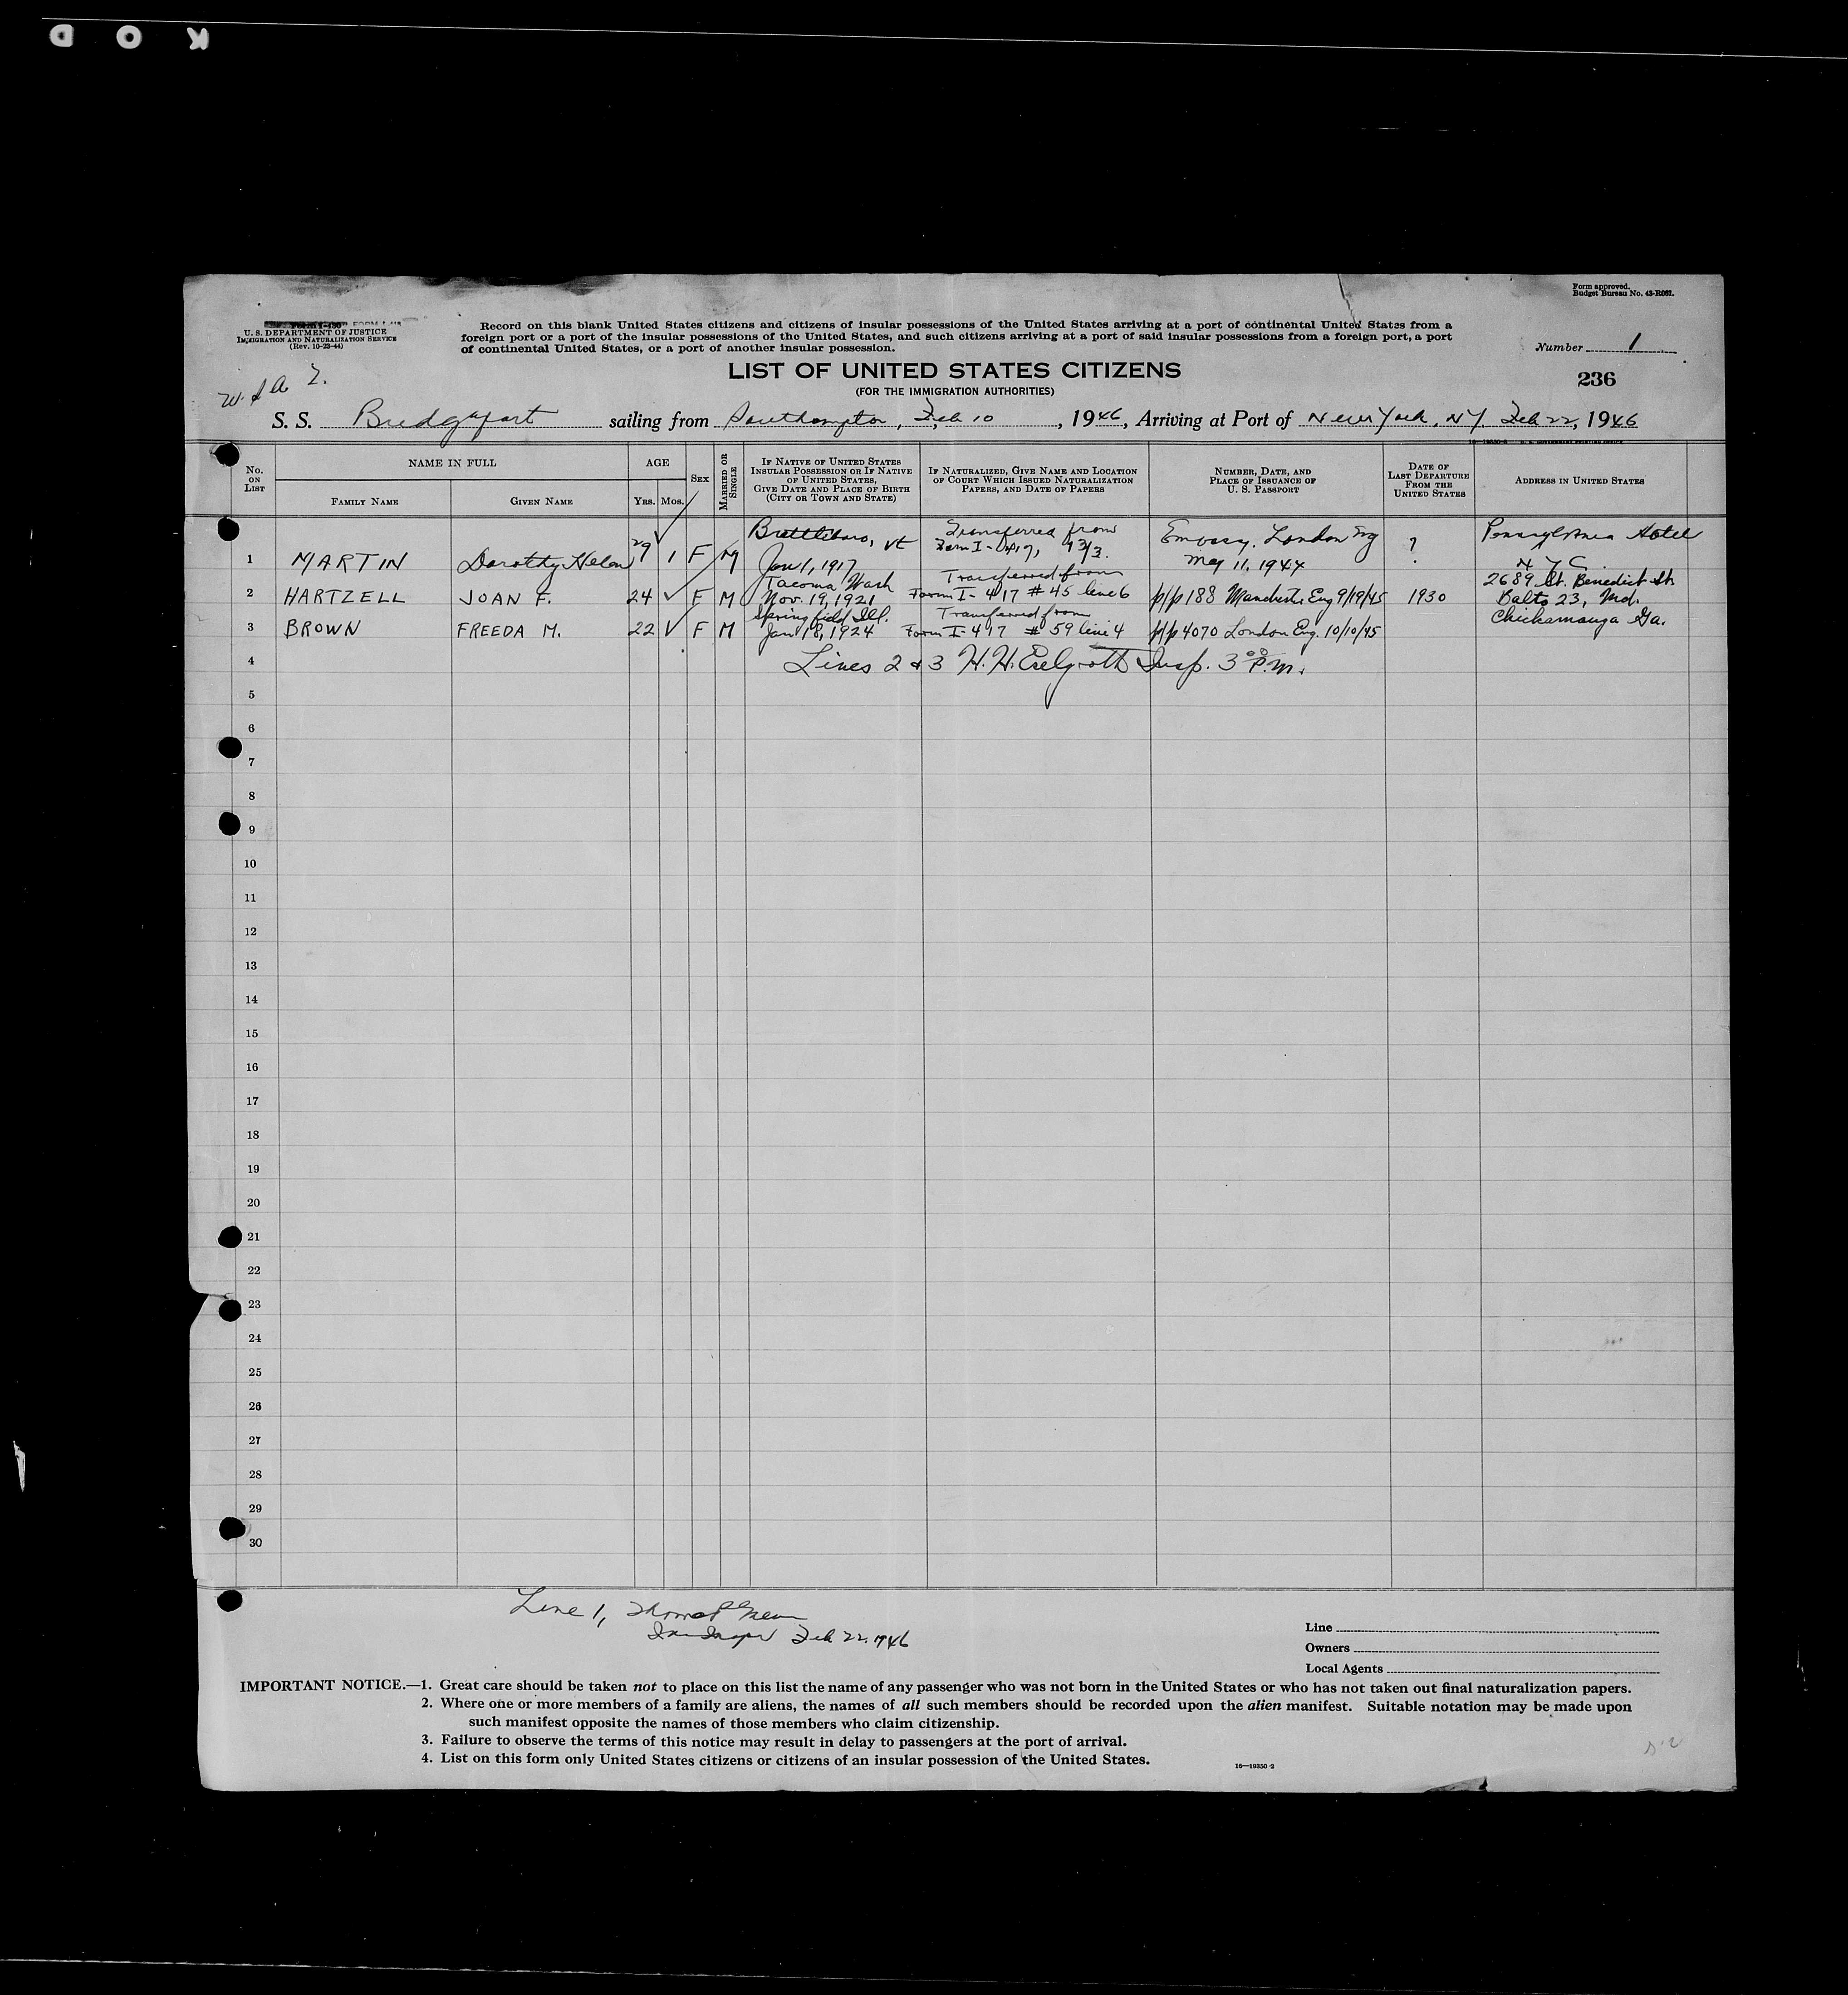 K O D
Form approved.
Budget Bureau No. 43-R061.
U. S. DEPARTMENT OF JUSTICE
IMMIGRATION AND NATURALIZATION SERVICE
(Rev. 10-23-44)
Record on this blank United States citizens and citizens of insular possessions of the United States arriving at a port of continental United States from a
foreign port or a port of the insular possessions of the United States, and such citizens arriving at a port of said insular possessions from a foreign port, a port
of continental United States, or a port of another insular possession.
Number 1
LIST OF UNITED STATES CITIZENS
236
(FOR THE IMMIGRATION AUTHORITIES)
S. S. Bridgeport sailing from Southampton, Feb 10, 1946, Arriving at Port of New York, NY Feb 22, 1946
NO. ON LIST
NAME IN FULL
FAMILY NAME
GIVEN NAME
AGE
YRS. MOS.
SEX
MARRIED OR SINGLE
IF NATIVE OF UNITED STATES
INSULAR POSSESSION OR IF NATIVE
OF UNITED STATES,
GIVE DATE AND PLACE OF BIRTH
(CITY OR TOWN AND STATE)
IF NATURALIZED, GIVE NAME AND LOCATION
OF COURT WHICH ISSUED NATURALIZATION
PAPERS, AND DATE OF PAPERS
NUMBER, DATE, AND
PLACE OF ISSUANCE OF
U. S. PASSPORT
DATE OF
LAST DEPARTURE
FROM THE
UNITED STATES
ADDRESS IN UNITED STATES
Brattleboro, Vt Transferred from Embassy, London Eng Pennsylvania Hotel
1 MARTIN Dorothy Helen 29 1 F M Jan 1, 1917 Form I-417, 93/3. May 11, 1944 ? N Y C
Tacoma Wash Transferred from 2689 St. Benedict St.
2 HARTZELL JOAN F. 24 ✓ F M Nov. 19, 1921 Form I-417 # 45 line 6 p/p 188 Manchester Eng 9/19/45 1930 Balto 23, Md.
Springfield Ill. Transferred from Chickamauga Ga.
3 BROWN FREEDA M. 22 ✓ F M Jan 18, 1924 Form I-417 # 59 line 4 p/p 4070 London Eng. 10/10/45
4 Lines 2 & 3 H. H. Insp. 3 00 P.M.
5
6
7
8
9
10
11
12
13
14
15
16
17
18
19
20
21
22
23
24
25
26
27
28
29
30
Line 1,
Feb 22, 1946
Line
Owners
Local Agents
IMPORTANT NOTICE.—1. Great care should be taken not to place on this list the name of any passenger who was not born in the United States or who has not taken out final naturalization papers.
2. Where one or more members of a family are aliens, the names of all such members should be recorded upon the alien manifest. Suitable notation may be made upon
such manifest opposite the names of those members who claim citizenship.
3. Failure to observe the terms of this notice may result in delay to passengers at the port of arrival.
4. List on this form only United States citizens or citizens of an insular possession of the United States.
16—19350-2